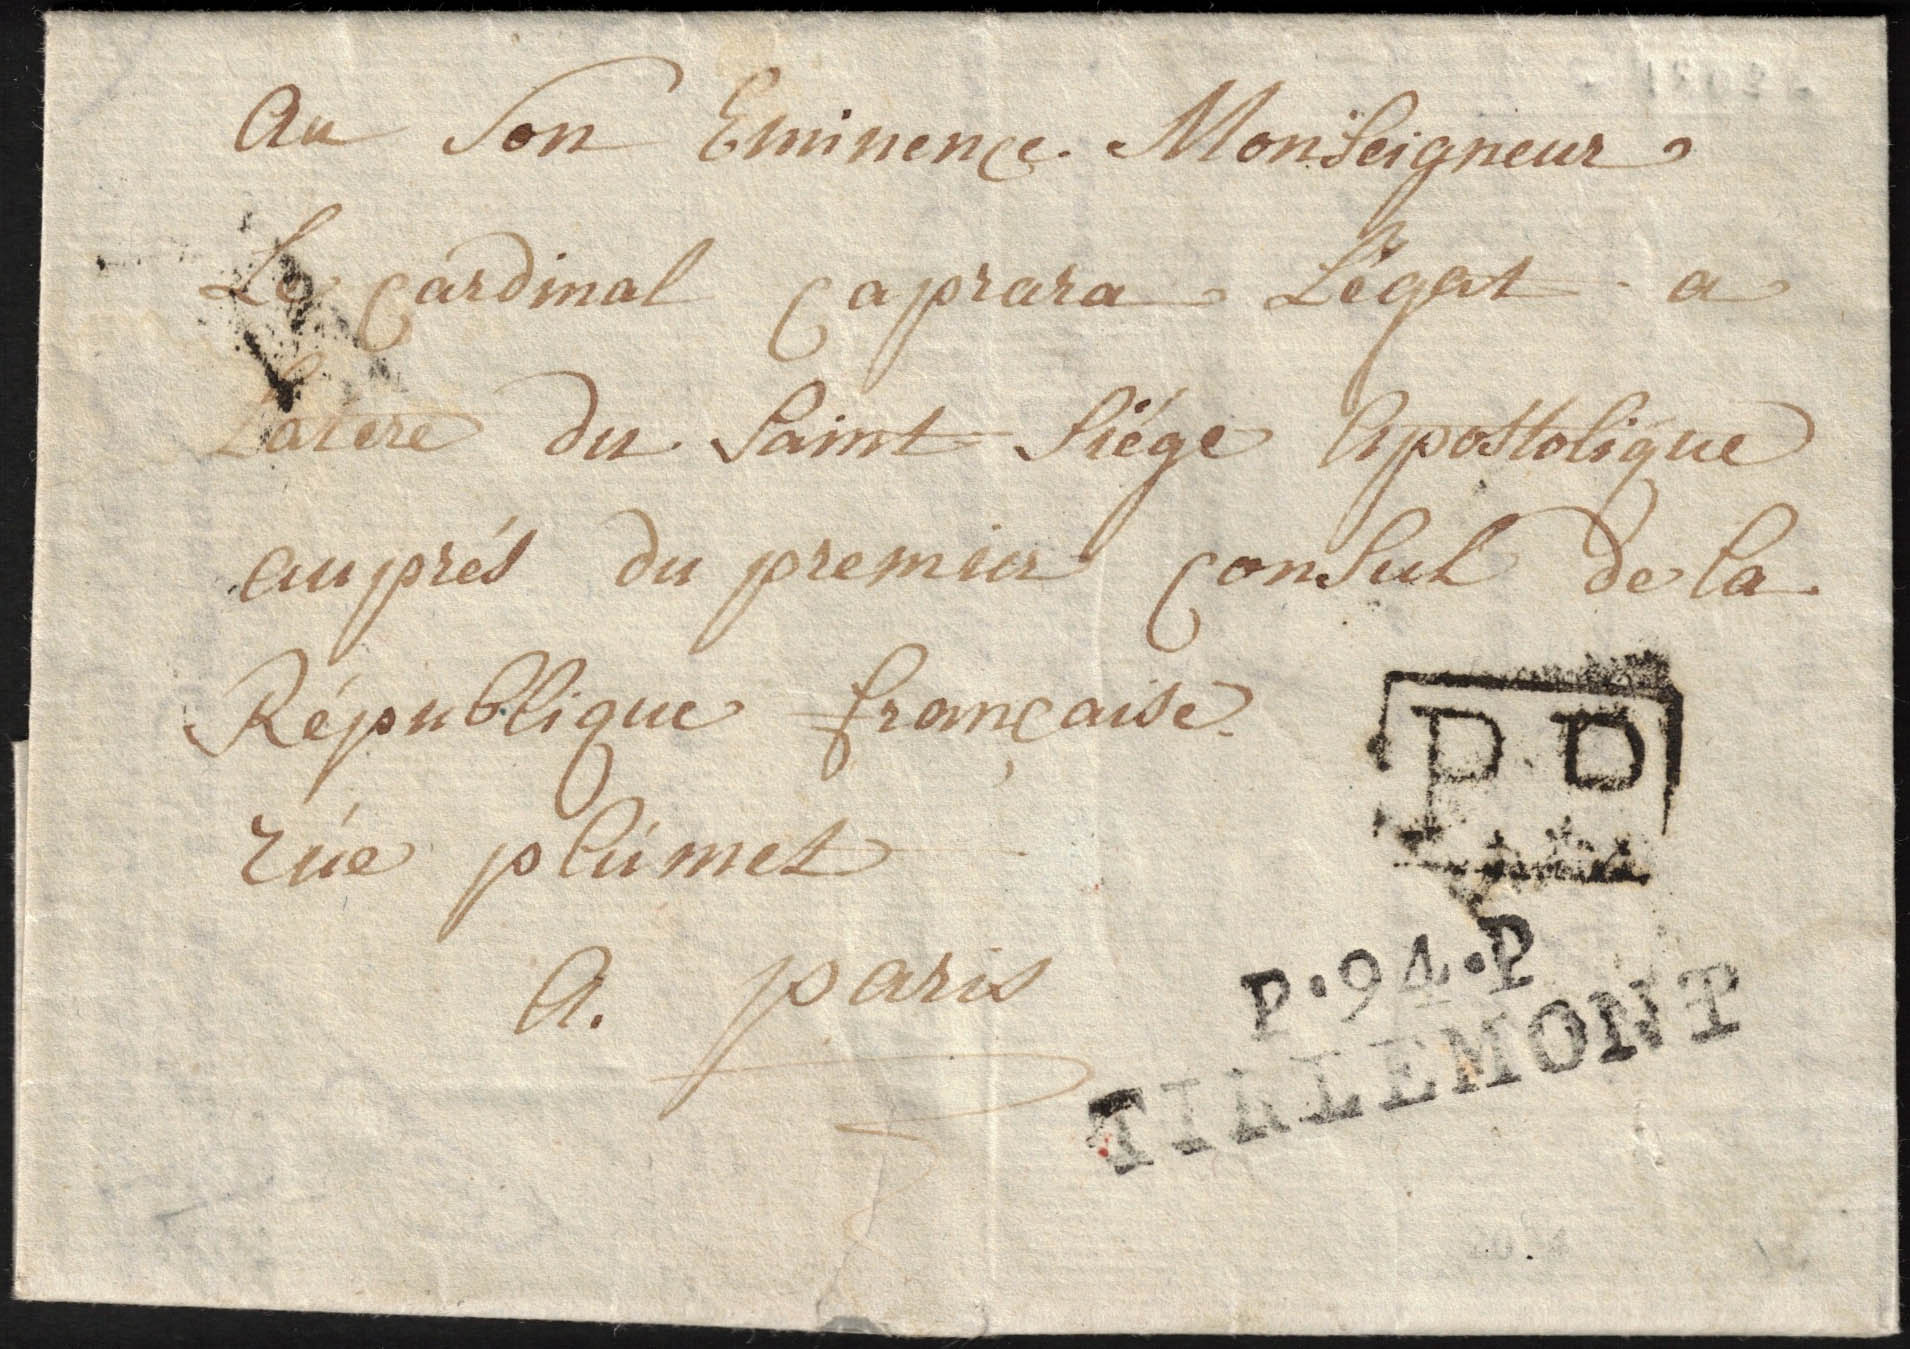 Au Son Eminence Monseigneur
Le Cardinal Caprara Légat a
Latere du Saint Siége Apostolique
auprés du premier Consul de la
République française
rúe plúmet
A. paris
PP
P.94.P
TIRLEMONT